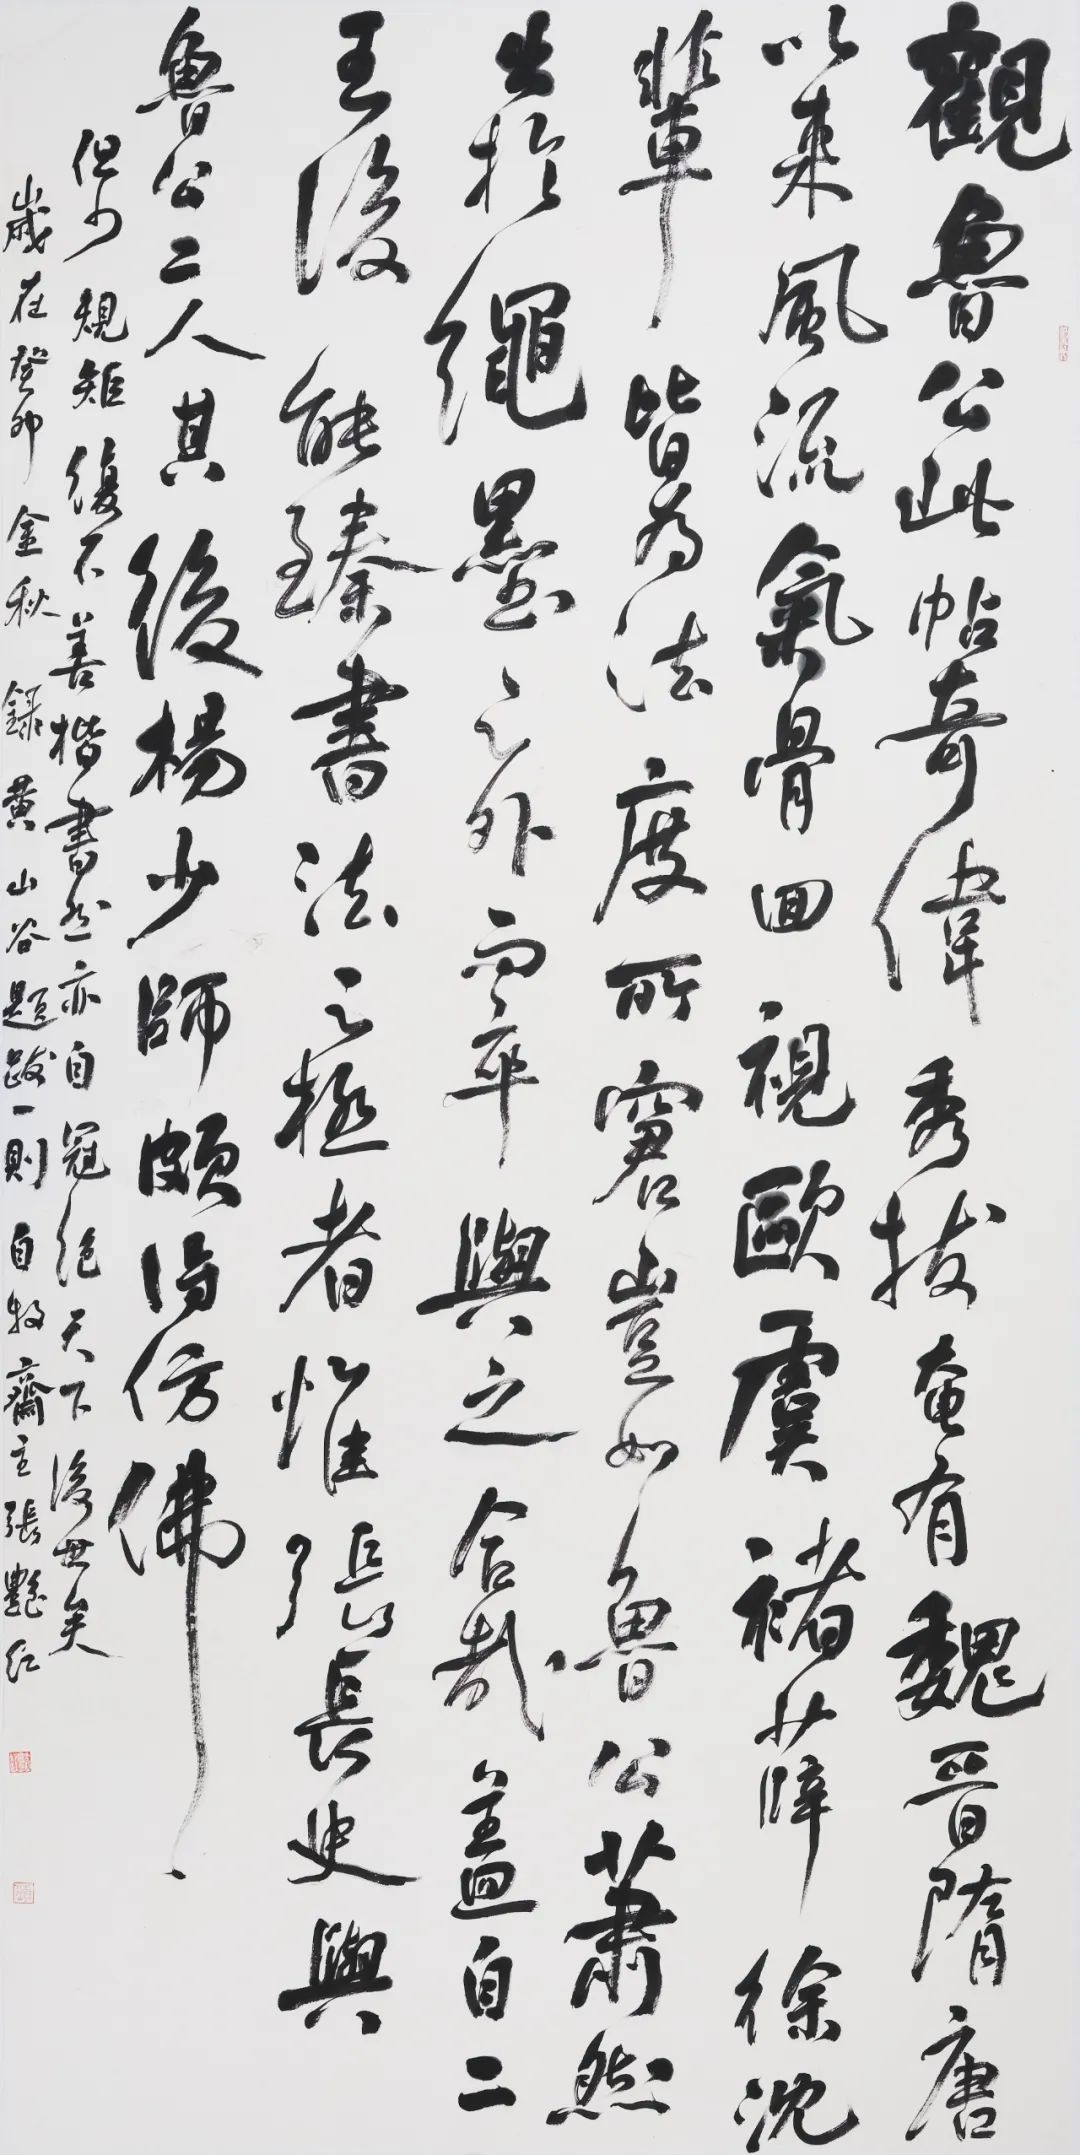 觀魯公此帖奇偉秀拔奄有魏晉隋唐
以來風流氣骨回視歐虞褚薛徐沈
輩皆為法度所窘豈如魯公蕭然
出於繩墨之外而卒與之合哉蓋自二
王後能臻書法之極者惟張長史與
魯公二人其後楊少師頗得仿佛
但少規矩復不善楷書然亦自冠絕天下後世矣
歲在癸卯金秋錄黃山谷題跋一則自牧齋主張艷紅